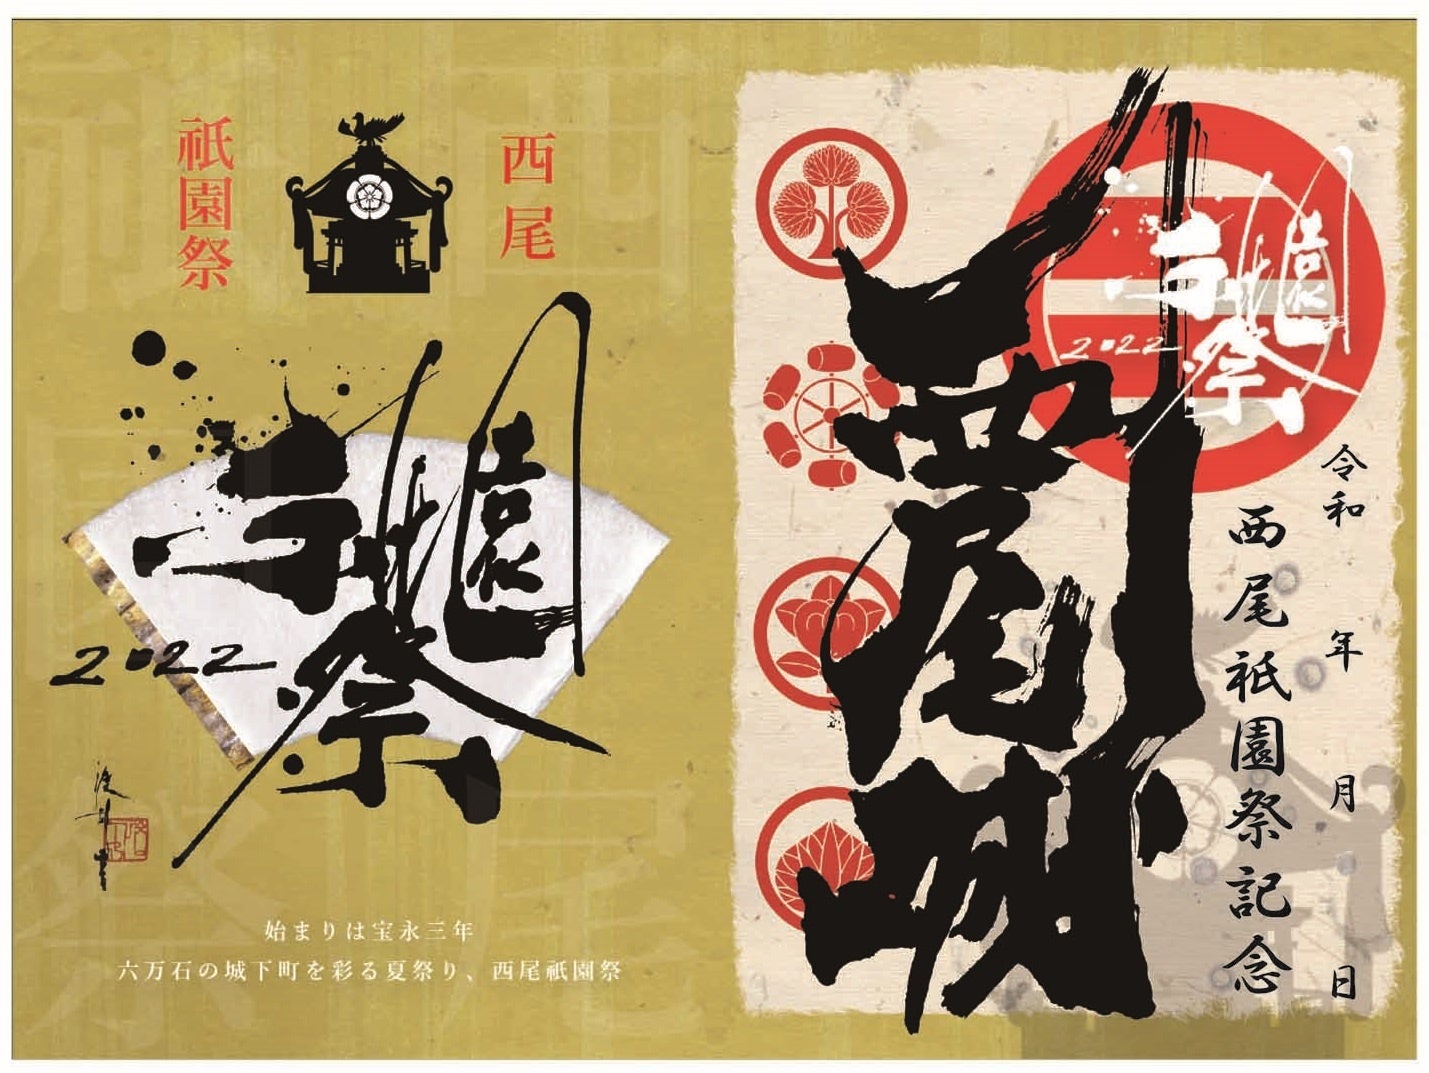 西尾
祇園祭
祇園祭
2022
始まりは宝永三年
六万石の城下町を彩る夏祭り、西尾祇園祭
祇園祭
2022
西尾城
令和 年 月 日
西尾祇園祭記念